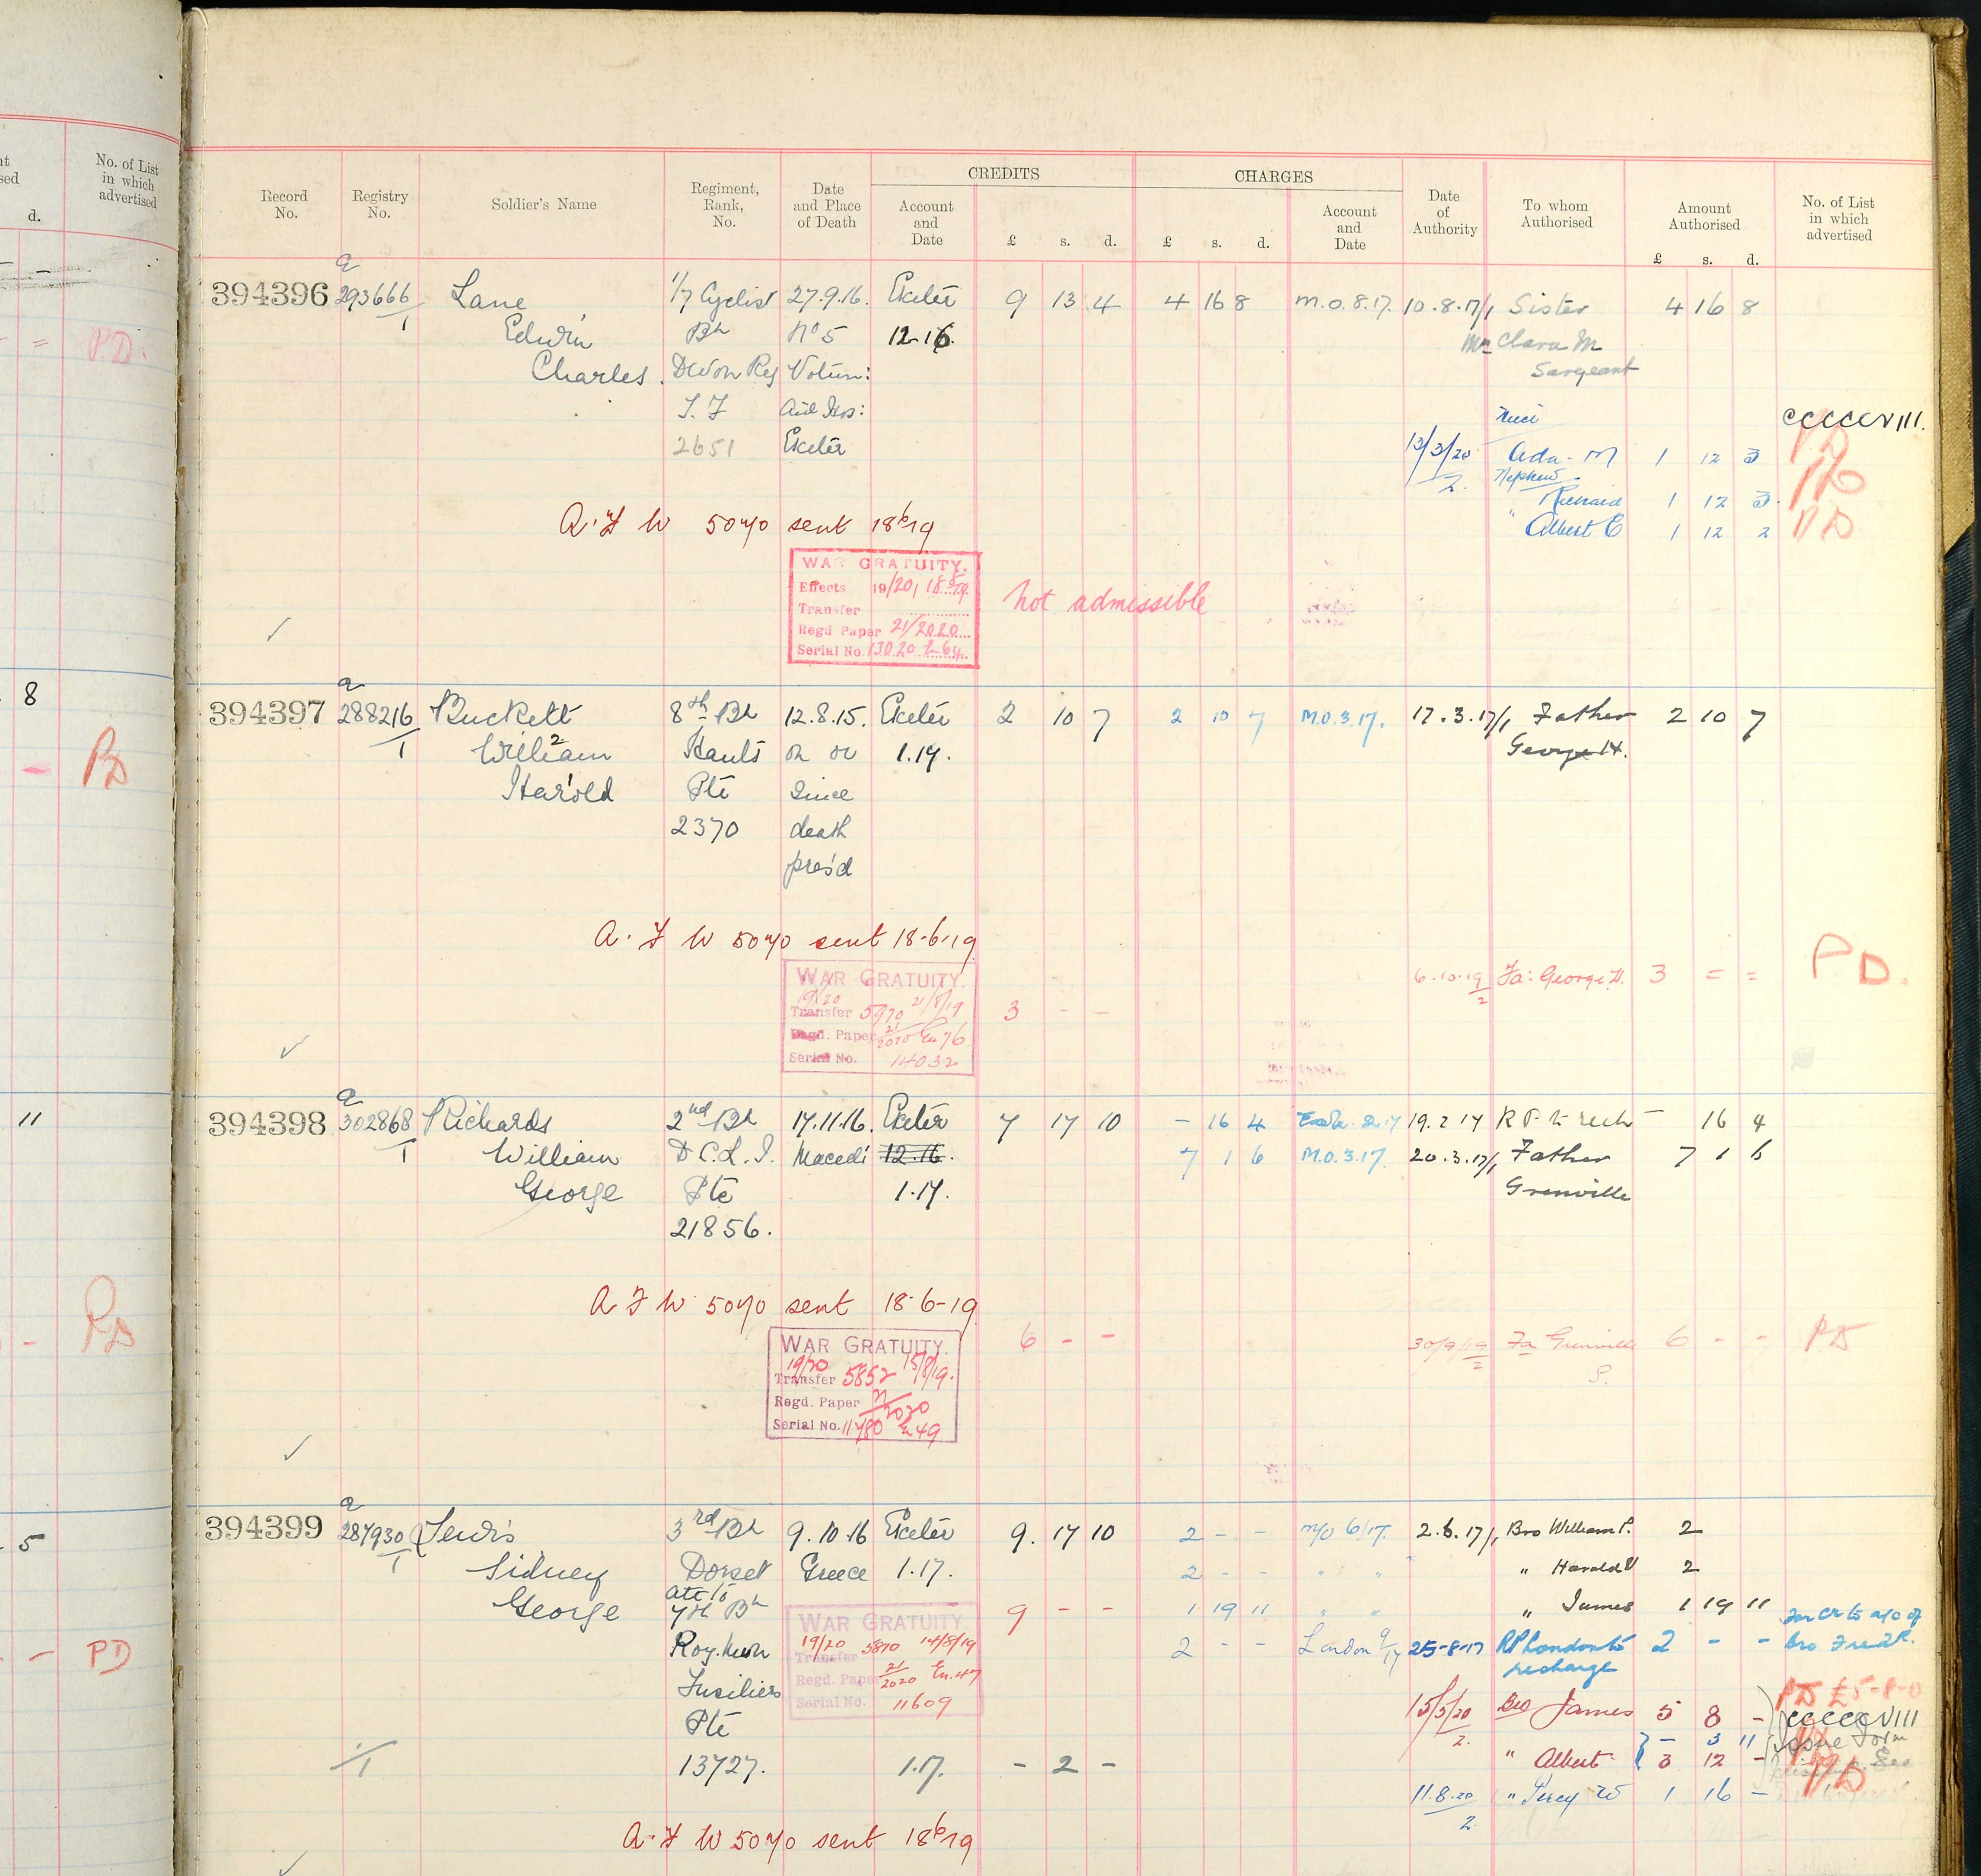 No. of List
in which
advertised
d.
PD.
8
PD
11
PD
5
PD
CREDITS
CHARGES
Record No.
Registry No.
Soldier's Name
Regiment, Rank, No.
Date and Place of Death
Account and Date
£ s. d.
£ s. d.
Account and Date
Date of Authority
To whom Authorised
Amount Authorised
£ s. d.
No. of List in which advertised
a
394396 293666/1 Lane 1/7 Cyclist 27.9.16. Exeter 9 13 4 4 16 8 M.O.8.17. 10.8.17/1 Sister 4 16 8
Edwin Bn No 5 12.16. Mrs Clara M
Charles. Devon Reg Volun: Sargeant
T.F Aid Hos:
2651 Exeter
Niece CCCCCVIII.
13/3/20 Ada M 1 12 3 PD
2. Nephew
Richard 1 12 3. PD
" Albert E 1 12 2 PD
A.F W 5070 sent 18/6/19
WAR GRATUITY.
Effects 19/20,
Transfer
Regd Paper 21/2020
Serial No. 13020
not admissible
a
394397 288216/1 Buckett 8th Bn 12.8.15. Exeter 2 10 7 2 10 7 M.O.3.17. 17.3.17/1 Father 2 10 7
William Hants on or 1.17. George H.
Harold Pte since
2370 death
pres'd
A.F W 5070 sent 18-6-19
WAR GRATUITY.
19/20
Transfer 5970 21/8/19 3 - -
Regd. Paper 21/2020 En 76
Serial No. 14032
6.10.19/2 Fa: George H. 3 = = PD.
a
394398 302868/1 Richards 2nd Bn 17.11.16. Exeter 7 17 10 - 16 4 19.2 17 R P to rech - 16 4
William D.C.L.I. Maced: 12.16. 7 1 6 M.O.3.17. 20.3.17/1 Father 7 1 6
George Pte 1.17. Grenville
21856.
A F W 5070 sent 18-6-19
WAR GRATUITY. 6 - -
19/20 15/8/19.
Transfer 5852
Regd. Paper 21/2020
Serial No. 11780 En 49
30/9/19/2 Fa Grenville 6 - - PD
S.
a
394399 287930/1 Lewis 3rd Bn 9.10.16 Exeter 9. 17 10 2 - - M/O 6/17. 2.6.17/1, Bro William P. 2
Sidney Dorset Greece 1.17. 2 - - " " " Harold V 2
George att to
7th Bn 9 - - 1 19 11 " " " James 1 19 11
Roy. Mun 2 - - London 9/17 25-8-17 RP London to 2 - -
Fusiliers recharge
Pte
13727.
for Cr to a/c of
bro Fredk.
WAR GRATUITY.
19/20 5870 14/8/19
Transfer
Regd. Paper 21/2020 En. 47
Serial No. 11609
PD £5-8-0
15/5/20 Bro James 5 8 - CCCCCVIII
2. - 3 11
" Albert 3 12 - PD
11.8.20 " Percy W 1 16 -
2
/1 1.17. - 2 -
A.F W 5070 sent 18/6/19